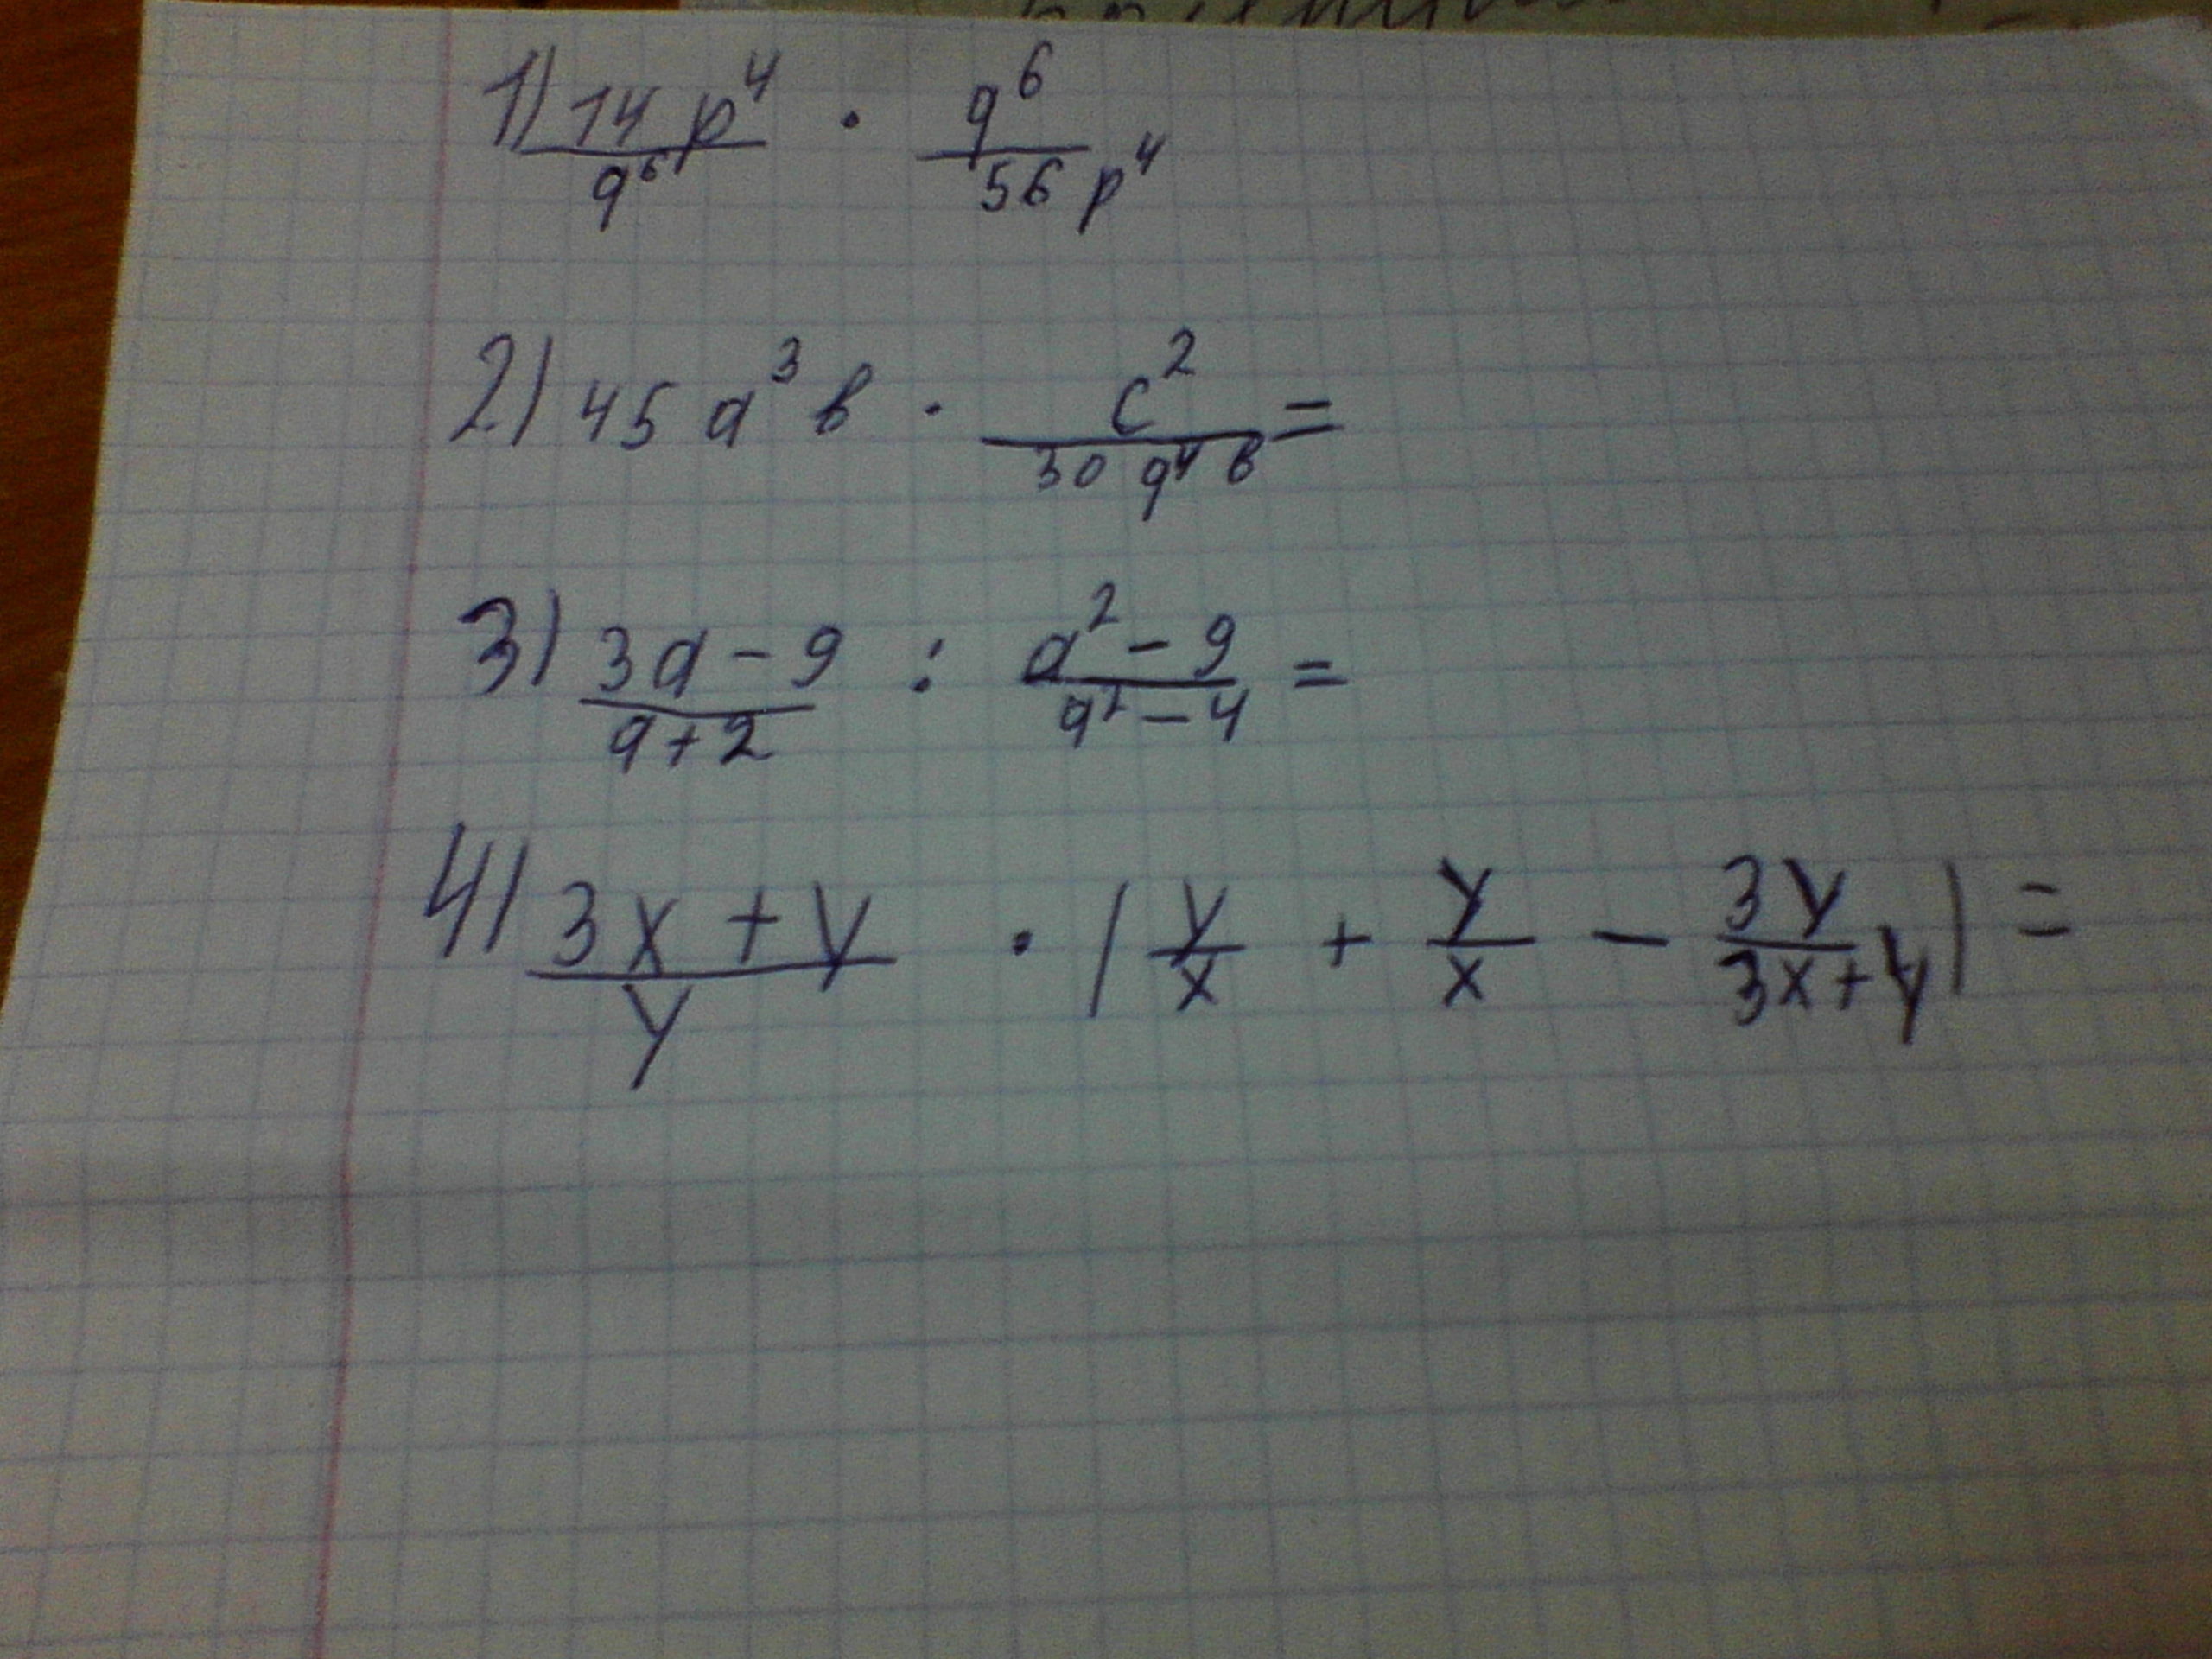 1) 14p⁴/q⁶ · q⁶/56p⁴
2) 45a³b · c²/30a⁴b =
3) 3a-9/a+2 : a²-9/a²-4 =
4) 3x+y/y · (y/x + y/x - 3y/3x+y) =